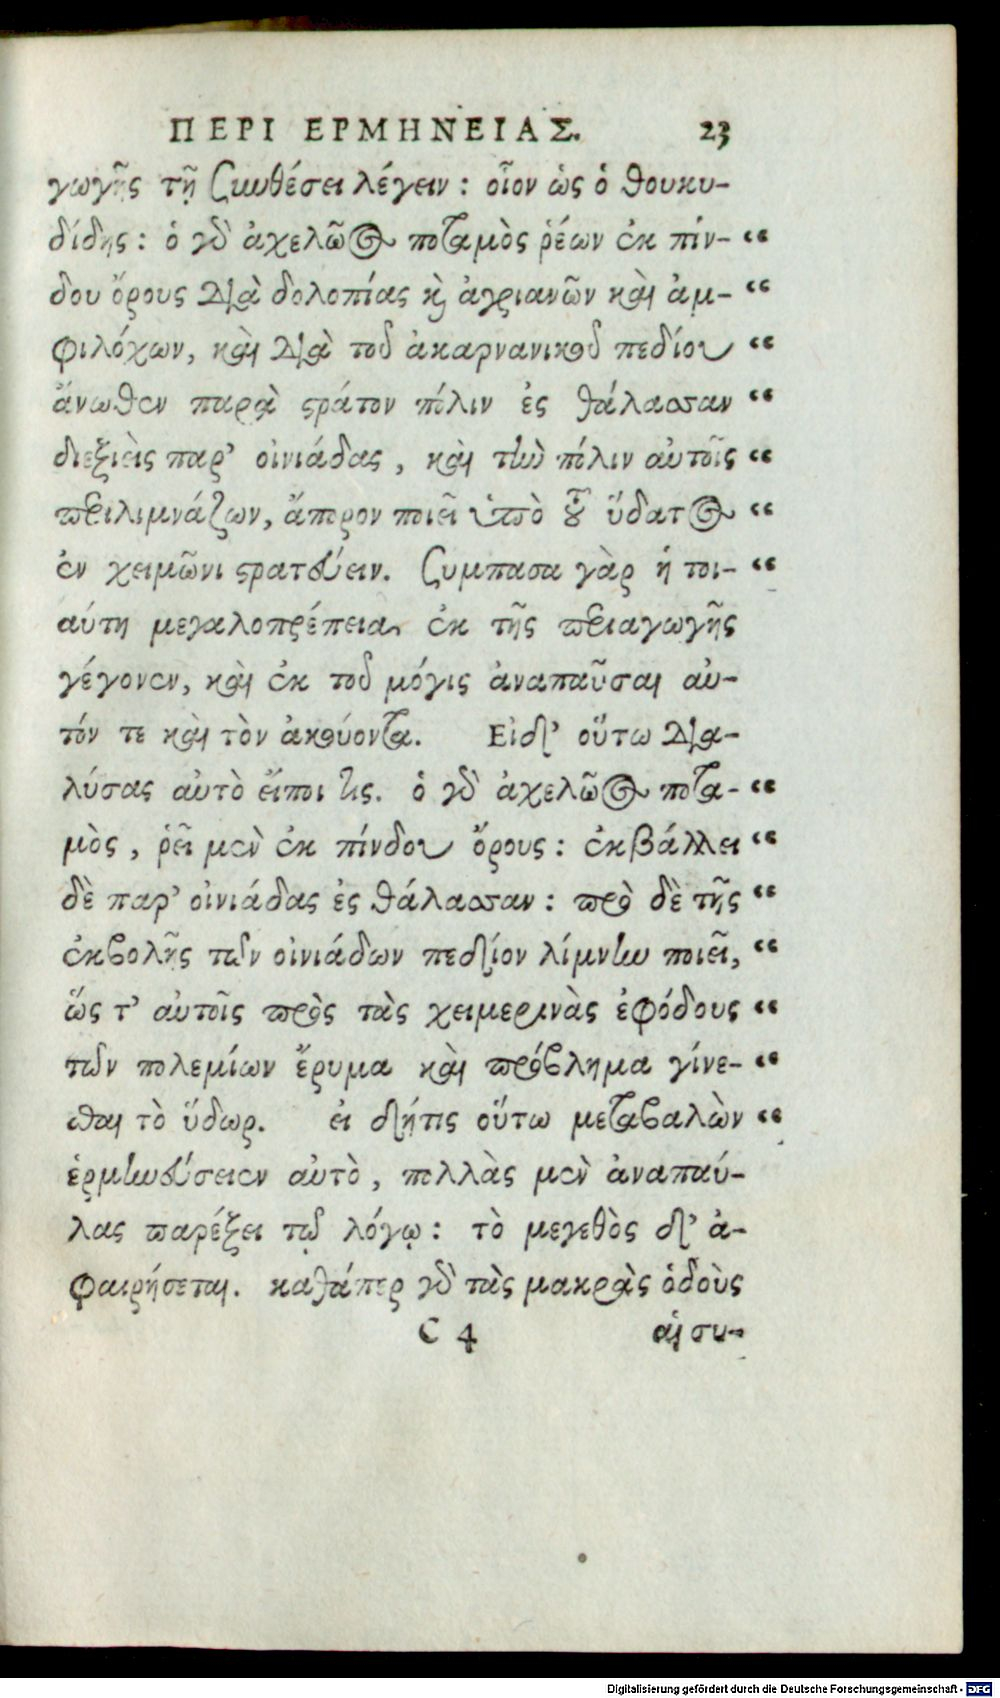 ΠΕΡΙ ΕΡΜΗΝΕΙΑΣ. 23
γωγῆς τῇ συνθέσει λέγειν : οἷον ὡς ὁ θουκυ-
δίδης : ὁ γὸ ἀχελῶος ποταμὸς ῥέων ἐκ πίν- “
δου ὄρους διὰ δολοπίας κὶ ἀγριανῶν καὶ ἀμ- “
φιλόχων, καὶ διὰ τοῦ ἀκαρνανικοῦ πεδίου “
ἄνωθεν παρὰ στράτον πόλιν ἐς θάλασσαν “
διεξιεὶς παρ’ οἰνιάδας , καὶ τὴν πόλιν αὐτοῖς “
περιλιμνάζων, ἄπορον ποιεῖ ὑπὸ τοῦ ὕδατος “
ἐν χειμῶνι στρατεύειν. Συμπασα γὰρ ἡ τοι- “
αύτη μεγαλοπρέπεια ἐκ τῆς περιαγωγῆς
γέγονεν, καὶ ἐκ τοῦ μόγις ἀναπαῦσαι αὑ-
τόν τε καὶ τὸν ἀκούοντα. Εἰδ’ οὕτω δια-
λύσας αὐτὸ εἴποι τις. ὁ γὸ ἀχελῶος ποτα- “
μὸς , ῥεῖ μὲν ἐκ πίνδου ὄρους : ἐκβάλλει “
δὲ παρ’ οἰνιάδας ἐς θάλασσαν : πρὸ δὲ τῆς “
ἐκβολῆς τῶν οἰνιάδων πεδίον λίμνην ποιεῖ, “
ὥς τ’ αὐτοῖς πρὸς τὰς χειμερινὰς ἐφόδους “
τῶν πολεμίων ἔρυμα καὶ πρόβλημα γίνε- “
σθαι τὸ ὕδωρ. εἰ δήτις οὕτω μεταβαλὼν “
ἑρμηνεύσειεν αὐτὸ , πολλὰς μὲν ἀναπαύ-
λας παρέξει τῷ λόγῳ : τὸ μεγεθὸς δ’ ἀ-
φαιρήσεται. καθάπερ γὸ τὰς μακρὰς ὁδοὺς
C 4 αἱ συ-
Digitalisierung gefördert durch die Deutsche Forschungsgemeinschaft - DFG